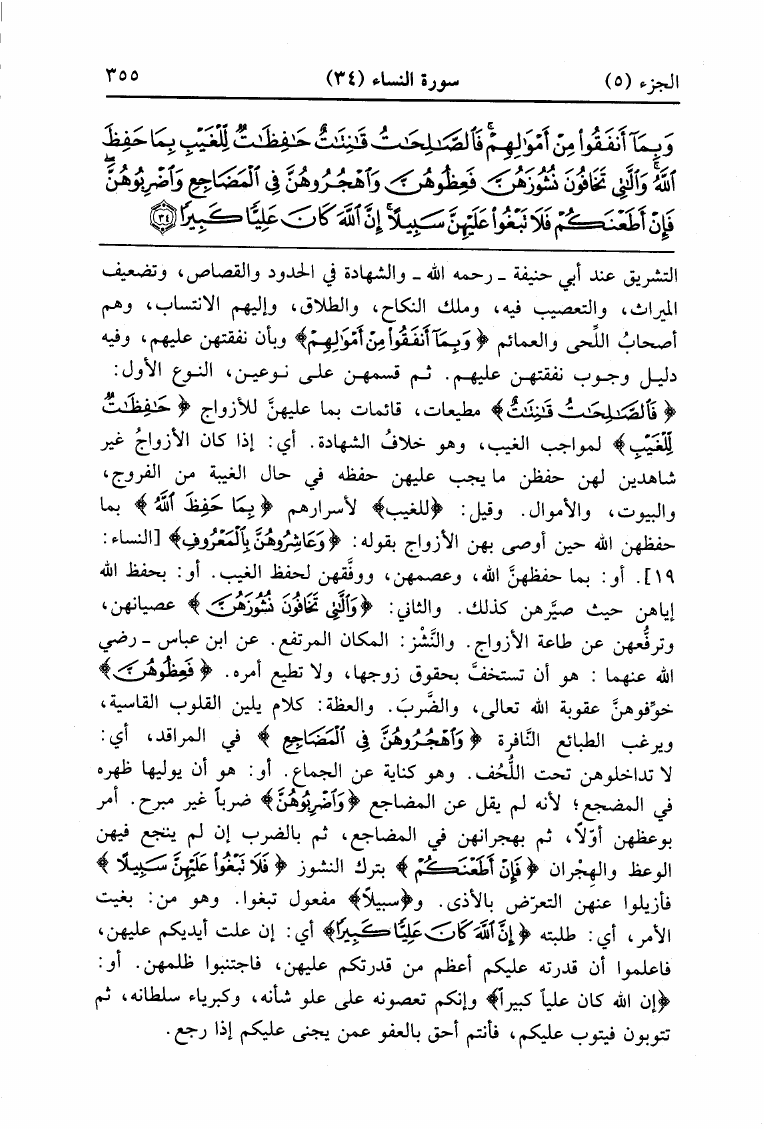 الجزء (٥) سورة النساء (٣٤) ٣٥٥
وَبِمَآ أَنفَقُواْ مِنْ أَمْوَٰلِهِمْۚ فَٱلصَّٰلِحَٰتُ قَٰنِتَٰتٌ حَٰفِظَٰتٌ لِّلْغَيْبِ بِمَا حَفِظَ
ٱللَّهُۚ وَٱلَّٰتِى تَخَافُونَ نُشُوزَهُنَّ فَعِظُوهُنَّ وَٱهْجُرُوهُنَّ فِى ٱلْمَضَاجِعِ وَٱضْرِبُوهُنَّۖ
فَإِنْ أَطَعْنَكُمْ فَلَا تَبْغُواْ عَلَيْهِنَّ سَبِيلًاۗ إِنَّ ٱللَّهَ كَانَ عَلِيًّا كَبِيرًا ٣٤
التشريق عند أبي حنيفة ـ رحمه الله ـ والشهادة في الحدود والقصاص، وتضعيف
الميراث، والتعصيب فيه، وملك النكاح، والطلاق، وإليهم الانتساب، وهم
أصحابُ اللِّحى والعمائم ﴿وَبِمَآ أَنفَقُواْ مِنْ أَمْوَٰلِهِمْ﴾ وبأن نفقتهن عليهم، وفيه
دليل وجوب نفقتهن عليهم. ثم قسمهن على نوعين، النوع الأول:
﴿فَٱلصَّٰلِحَٰتُ قَٰنِتَٰتٌ﴾ مطيعات، قائمات بما عليهنَّ للأزواج ﴿حَٰفِظَٰتٌ
لِّلْغَيْبِ﴾ لمواجب الغيب، وهو خلافُ الشهادة. أي: إذا كان الأزواجُ غير
شاهدين لهن حفظن ما يجب عليهن حفظه في حال الغيبة من الفروج،
والبيوت، والأموال. وقيل: ﴿للغيب﴾ لأسرارهم ﴿بِمَا حَفِظَ ٱللَّهُ﴾ بما
حفظهن الله حين أوصى بهن الأزواج بقوله: ﴿وَعَاشِرُوهُنَّ بِٱلْمَعْرُوفِ﴾ [النساء:
١٩]. أو: بما حفظهنَّ الله، وعصمهن، ووفَّقهن لحفظ الغيب. أو: بحفظ الله
إياهن حيث صيَّرهن كذلك. والثاني: ﴿وَٱلَّٰتِى تَخَافُونَ نُشُوزَهُنَّ﴾ عصيانهن،
وترفُّعهن عن طاعة الأزواج. والنَّشْز: المكان المرتفع. عن ابن عباس ـ رضي
الله عنهما: هو أن تستخفَّ بحقوق زوجها، ولا تطيع أمره. ﴿فَعِظُوهُنَّ﴾
خوِّفوهنَّ عقوبة الله تعالى، والضَّربَ. والعظة: كلام يلين القلوب القاسية،
ويرغب الطبائع النَّافرة ﴿وَٱهْجُرُوهُنَّ فِى ٱلْمَضَاجِعِ﴾ في المراقد، أي:
لا تداخلوهن تحت اللُّحُف. وهو كناية عن الجماع. أو: هو أن يوليها ظهره
في المضجع؛ لأنه لم يقل عن المضاجع ﴿وَٱضْرِبُوهُنَّ﴾ ضرباً غير مبرح. أمر
بوعظهن أوّلاً، ثم بهجرانهن في المضاجع، ثم بالضرب إن لم ينجع فيهن
الوعظ والهِجْران ﴿فَإِنْ أَطَعْنَكُمْ﴾ بترك النشوز ﴿فَلَا تَبْغُواْ عَلَيْهِنَّ سَبِيلًا﴾
فأزيلوا عنهن التعرّض بالأذى. و﴿سبيلاً﴾ مفعول تبغوا. وهو من: بغيت
الأمر، أي: طلبته ﴿إِنَّ ٱللَّهَ كَانَ عَلِيًّا كَبِيرًا﴾ أي: إن علت أيديكم عليهن،
فاعلموا أن قدرته عليكم أعظم من قدرتكم عليهن، فاجتنبوا ظلمهن. أو:
﴿إن الله كان علياً كبيراً﴾ وإنكم تعصونه على علو شأنه، وكبرياء سلطانه، ثم
تتوبون فيتوب عليكم، فأنتم أحق بالعفو عمن يجنى عليكم إذا رجع.